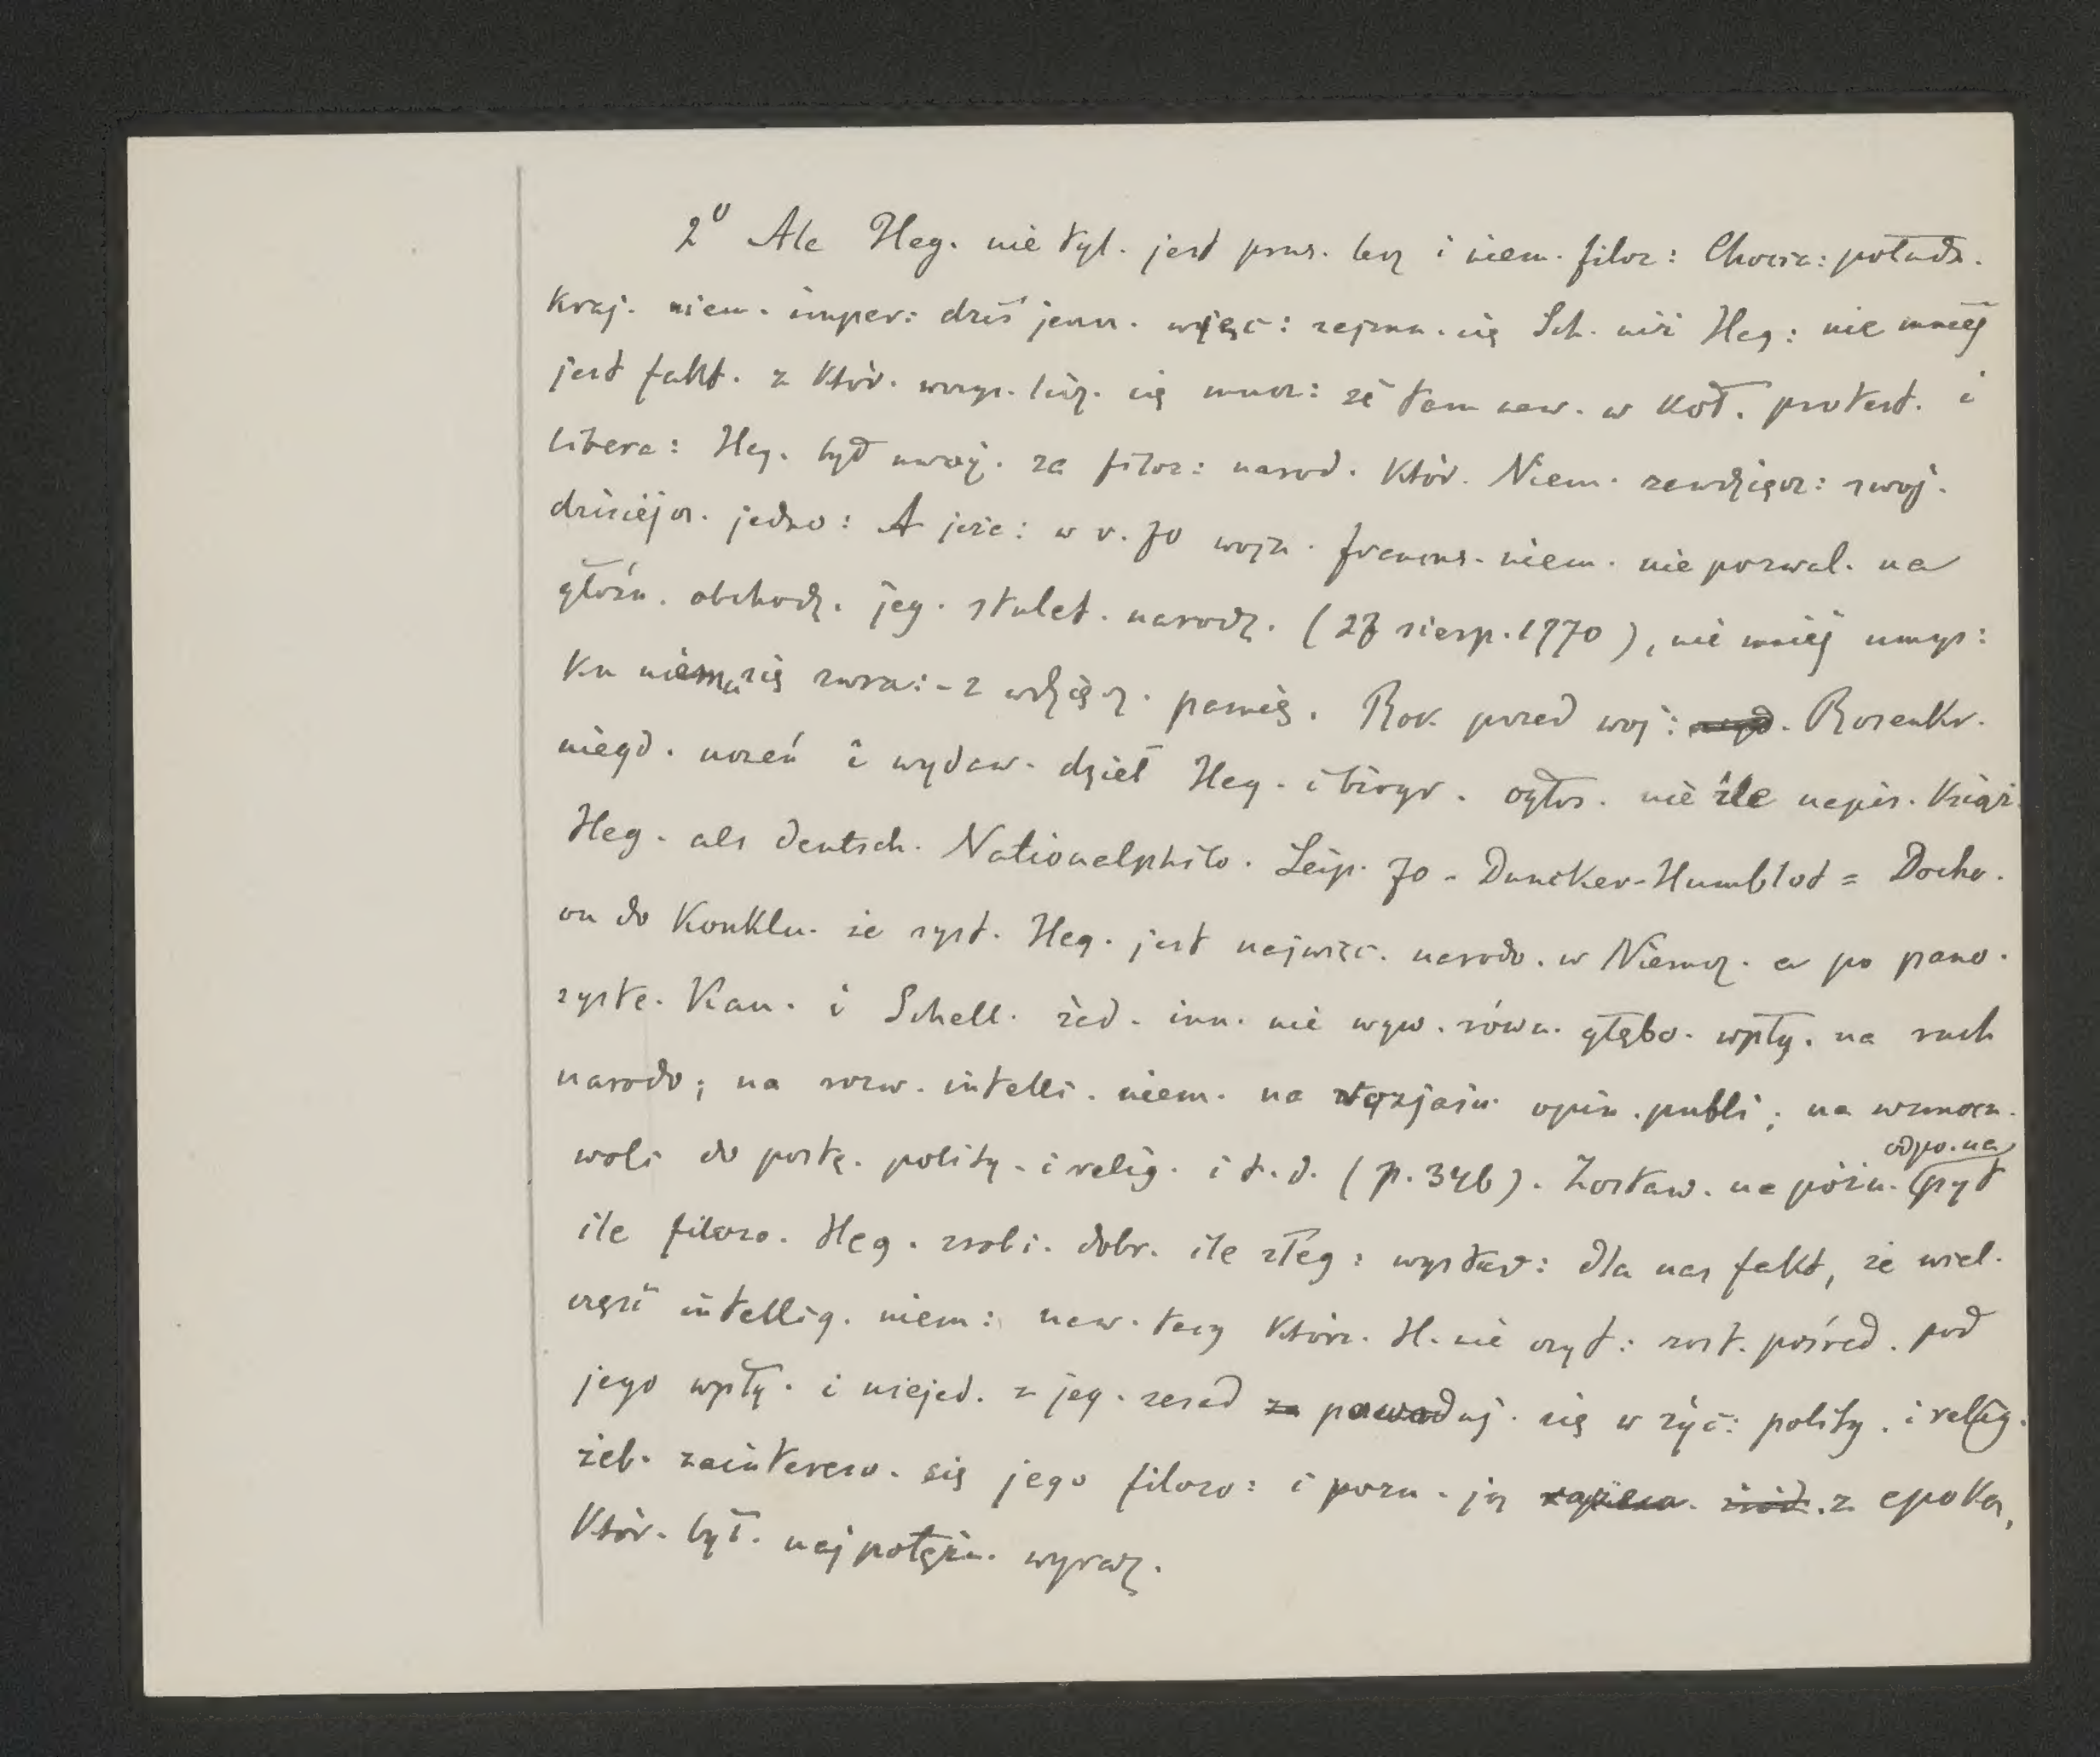 2⁰ Ale Heg. nie tyl. jest prus. lecz i niem. filoz: Chocia: połudn.
kraj. niem. imper: dziś jeszcz. więc: zajmu. się Sch. niż Heg: nie mniej
jest fakt. z któr. wszys. licz. się musz: że tam naw. w koł. protest. i
libera: Heg. był uważ. za filoz: narod. któr. Niem. zawdzięcz: swoj.
dzisiejsz. jedno: A jeże: w r. 70 wojn. francus. niem. nie pozwal. na
głośn. obchodz. jeg. stulet. narodz. (27 sierp. 1770), nie mniej umys:
ku niemu się zwra: z wdzięcz. pamię. Rok przed woj: Rosenkr.
niegd. uczeń i wydaw. dzieł Heg. i biogr. ogłos. nie źle napis. książ.
Heg. als deutsch. Nationalphilo. Leip. 70 - Duncker-Humblot = Docho.
on do konklu. że syst. Heg. jest najwięc. narodo. w Niemcz. a po pano.
syste. Kan. i Schell. żad. inn. nie wyw. równ. głębo. wpły. na ruch
narodo; na rozw. intelli. niem. na wyjaśn. opin. publi; na wzmocn.
woli do postę. polity. i relig. i t. d. (p. 346). Zostaw. na późn. odpo. na pyt
ile filozo. Heg. zrobi. dobr. ile złeg: wystar: dla nas fakt, że wiel.
część intellig. niem: naw. tacy którz. H. nie czyt: zost. pośred. pod
jego wpły. i niejed. z jeg. zasad powoduj. się w życ: polity. i relig.
żeb. zaintereso. się jego filozo: i pozn. ją z epoką,
któr. był. najpotężn. wyraz.